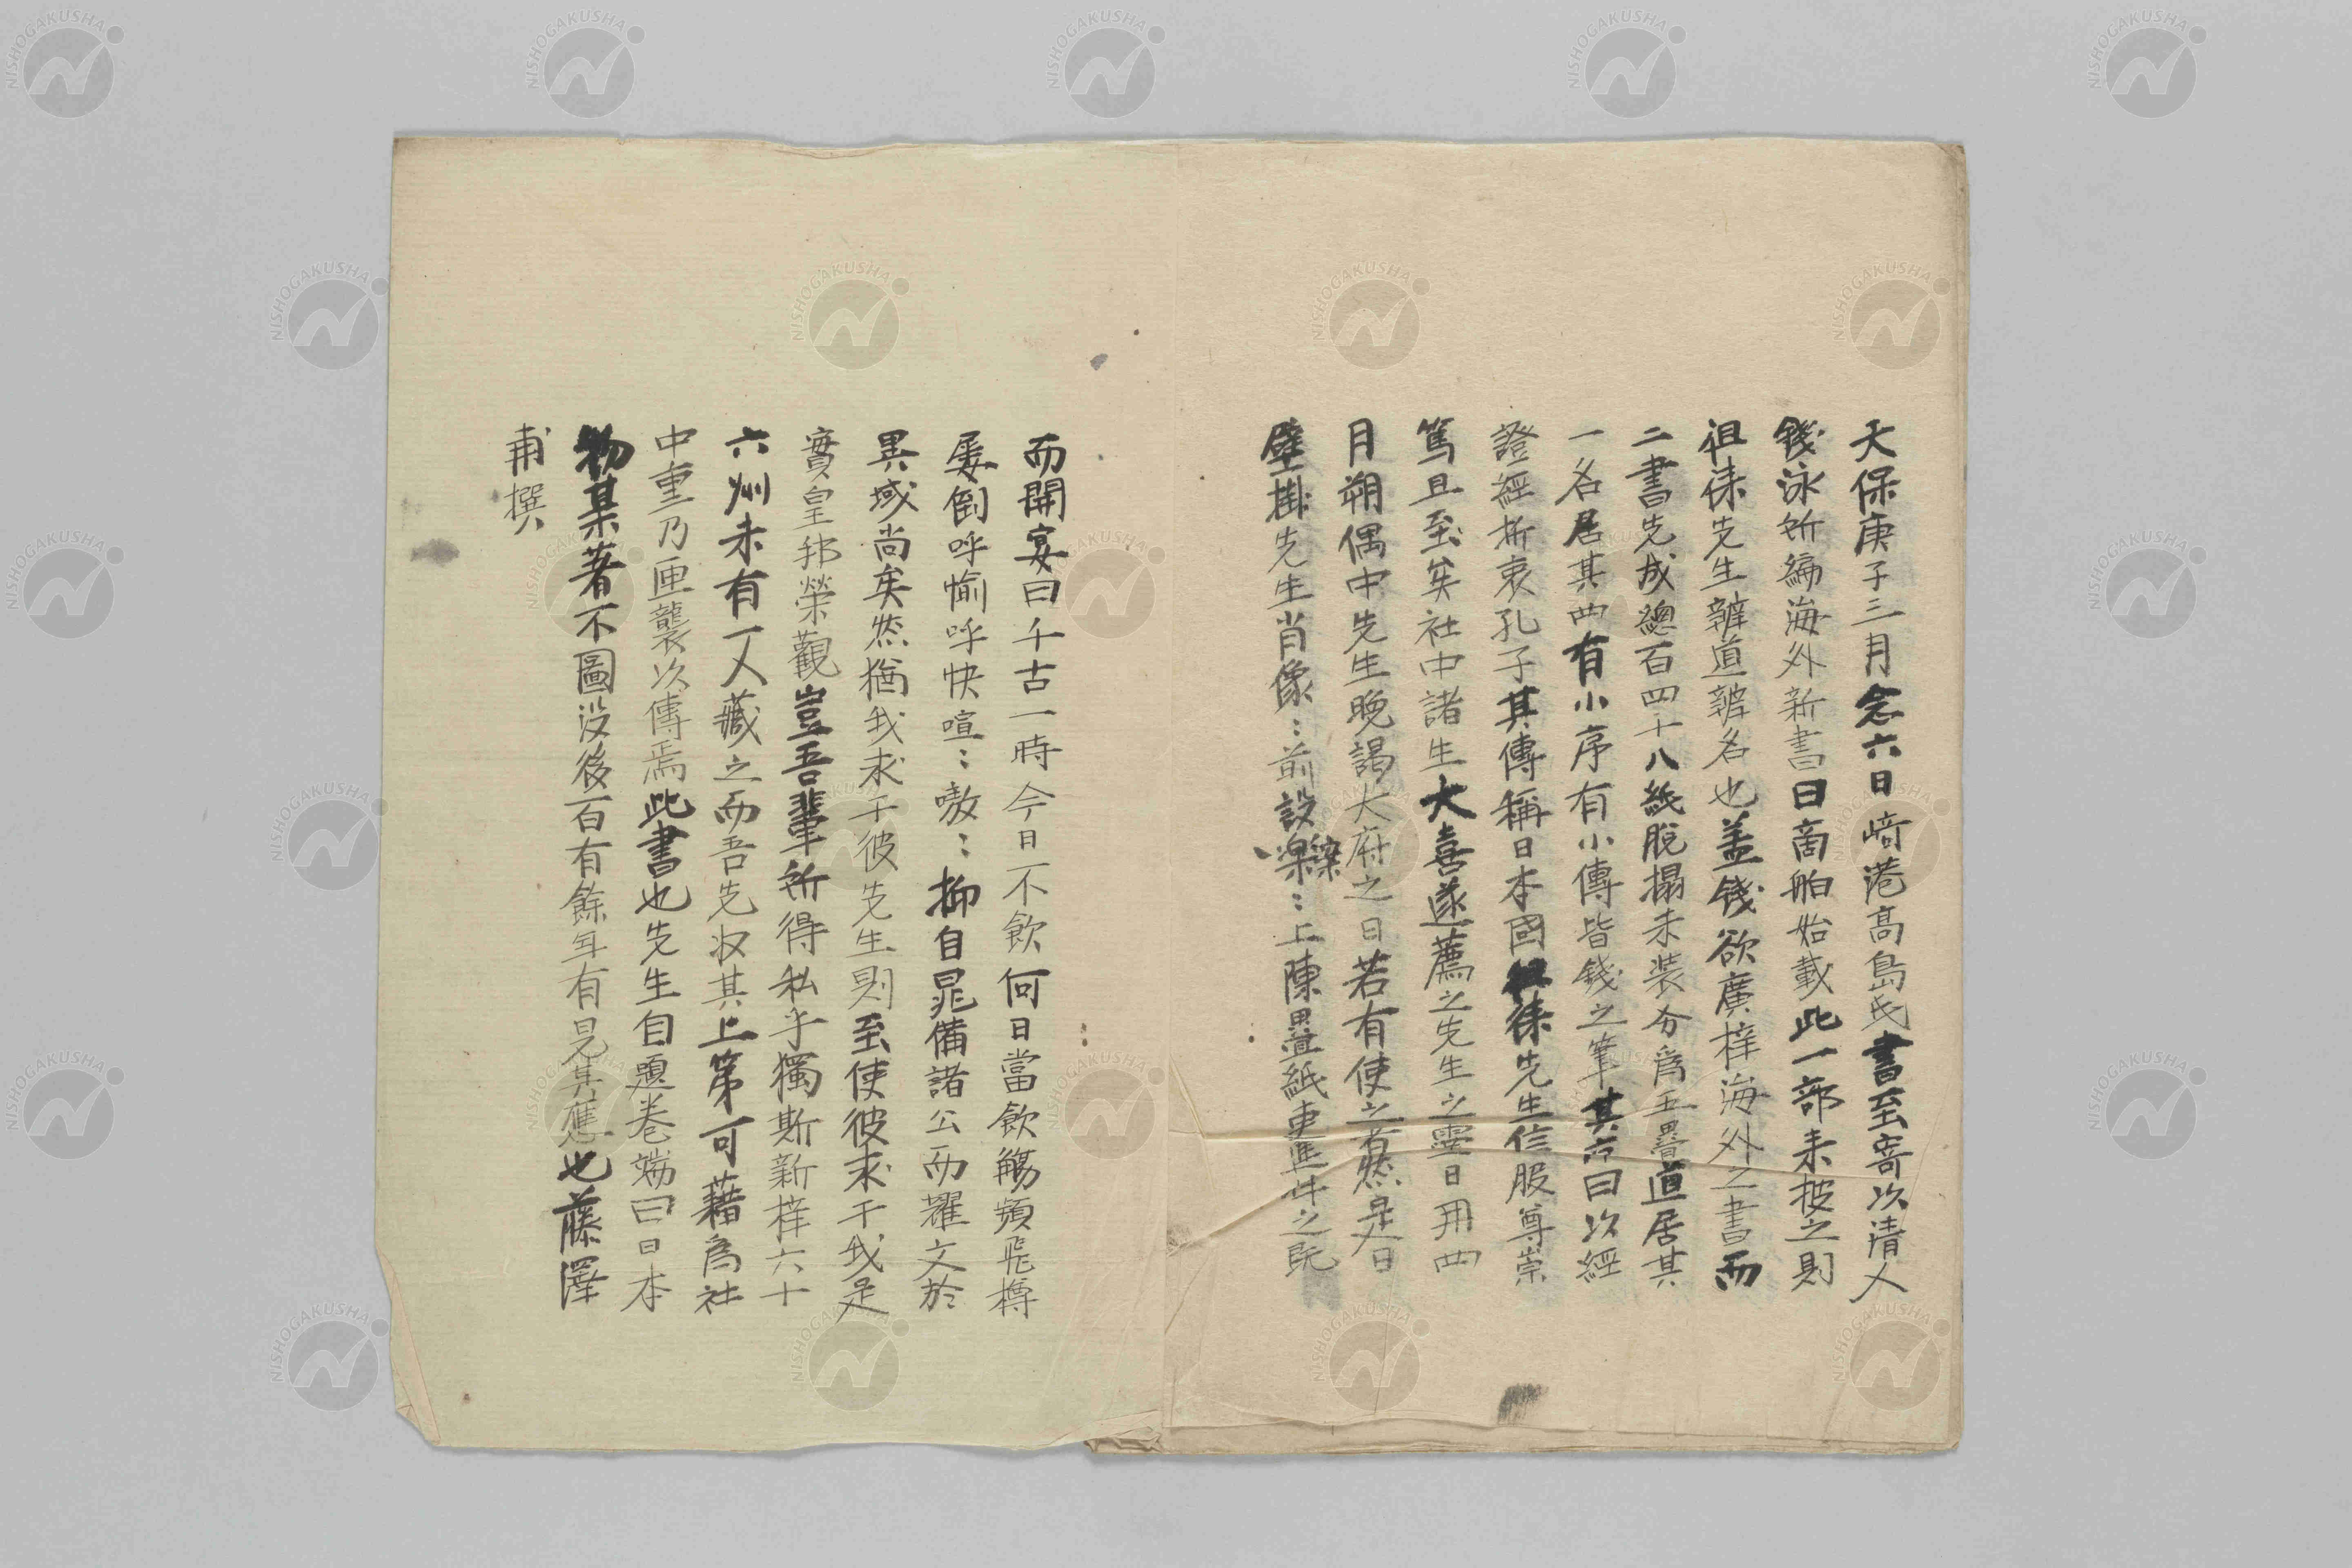 天保庚子三月念六日崎港高島氏書至寄以清人
錢泳所編海外新書曰商舶始載此一部来披之則
徂徠先生辨道辨名也盖錢欲廣梓海外之書而
二書先成總百四十八紙脫搨未装分爲五疊道居其
一名居其四有小序有小傳皆錢之筆其言曰以經
證經折衷孔子其傳稱日本國徂徠先生信服尊崇
篤且至矣社中諸生大喜遂薦之先生之靈日用四
月朔偶中先生晚謁大府之日若有使之者然是日
壁掛先生肖像〻前設案〻上陳疊紙更進牛之既
而開宴曰千古一時今日不飲何日當飲觴頻飛樽
屡倒呼愉呼快喧〻嗷〻抑自晁備諸公而耀文於
異域尚矣然猶我求于彼先生則至使彼求于我是
實皇邦榮觀豈吾輩所得私乎獨斯新梓六十
六州未有一人藏之而吾先收其上第可藉爲社
中重乃匣襲以傳焉此書也先生自題卷端曰日本
物某著不圖没後百有餘年有見其應也藤澤
甫撰
NISHOGAKUSHA